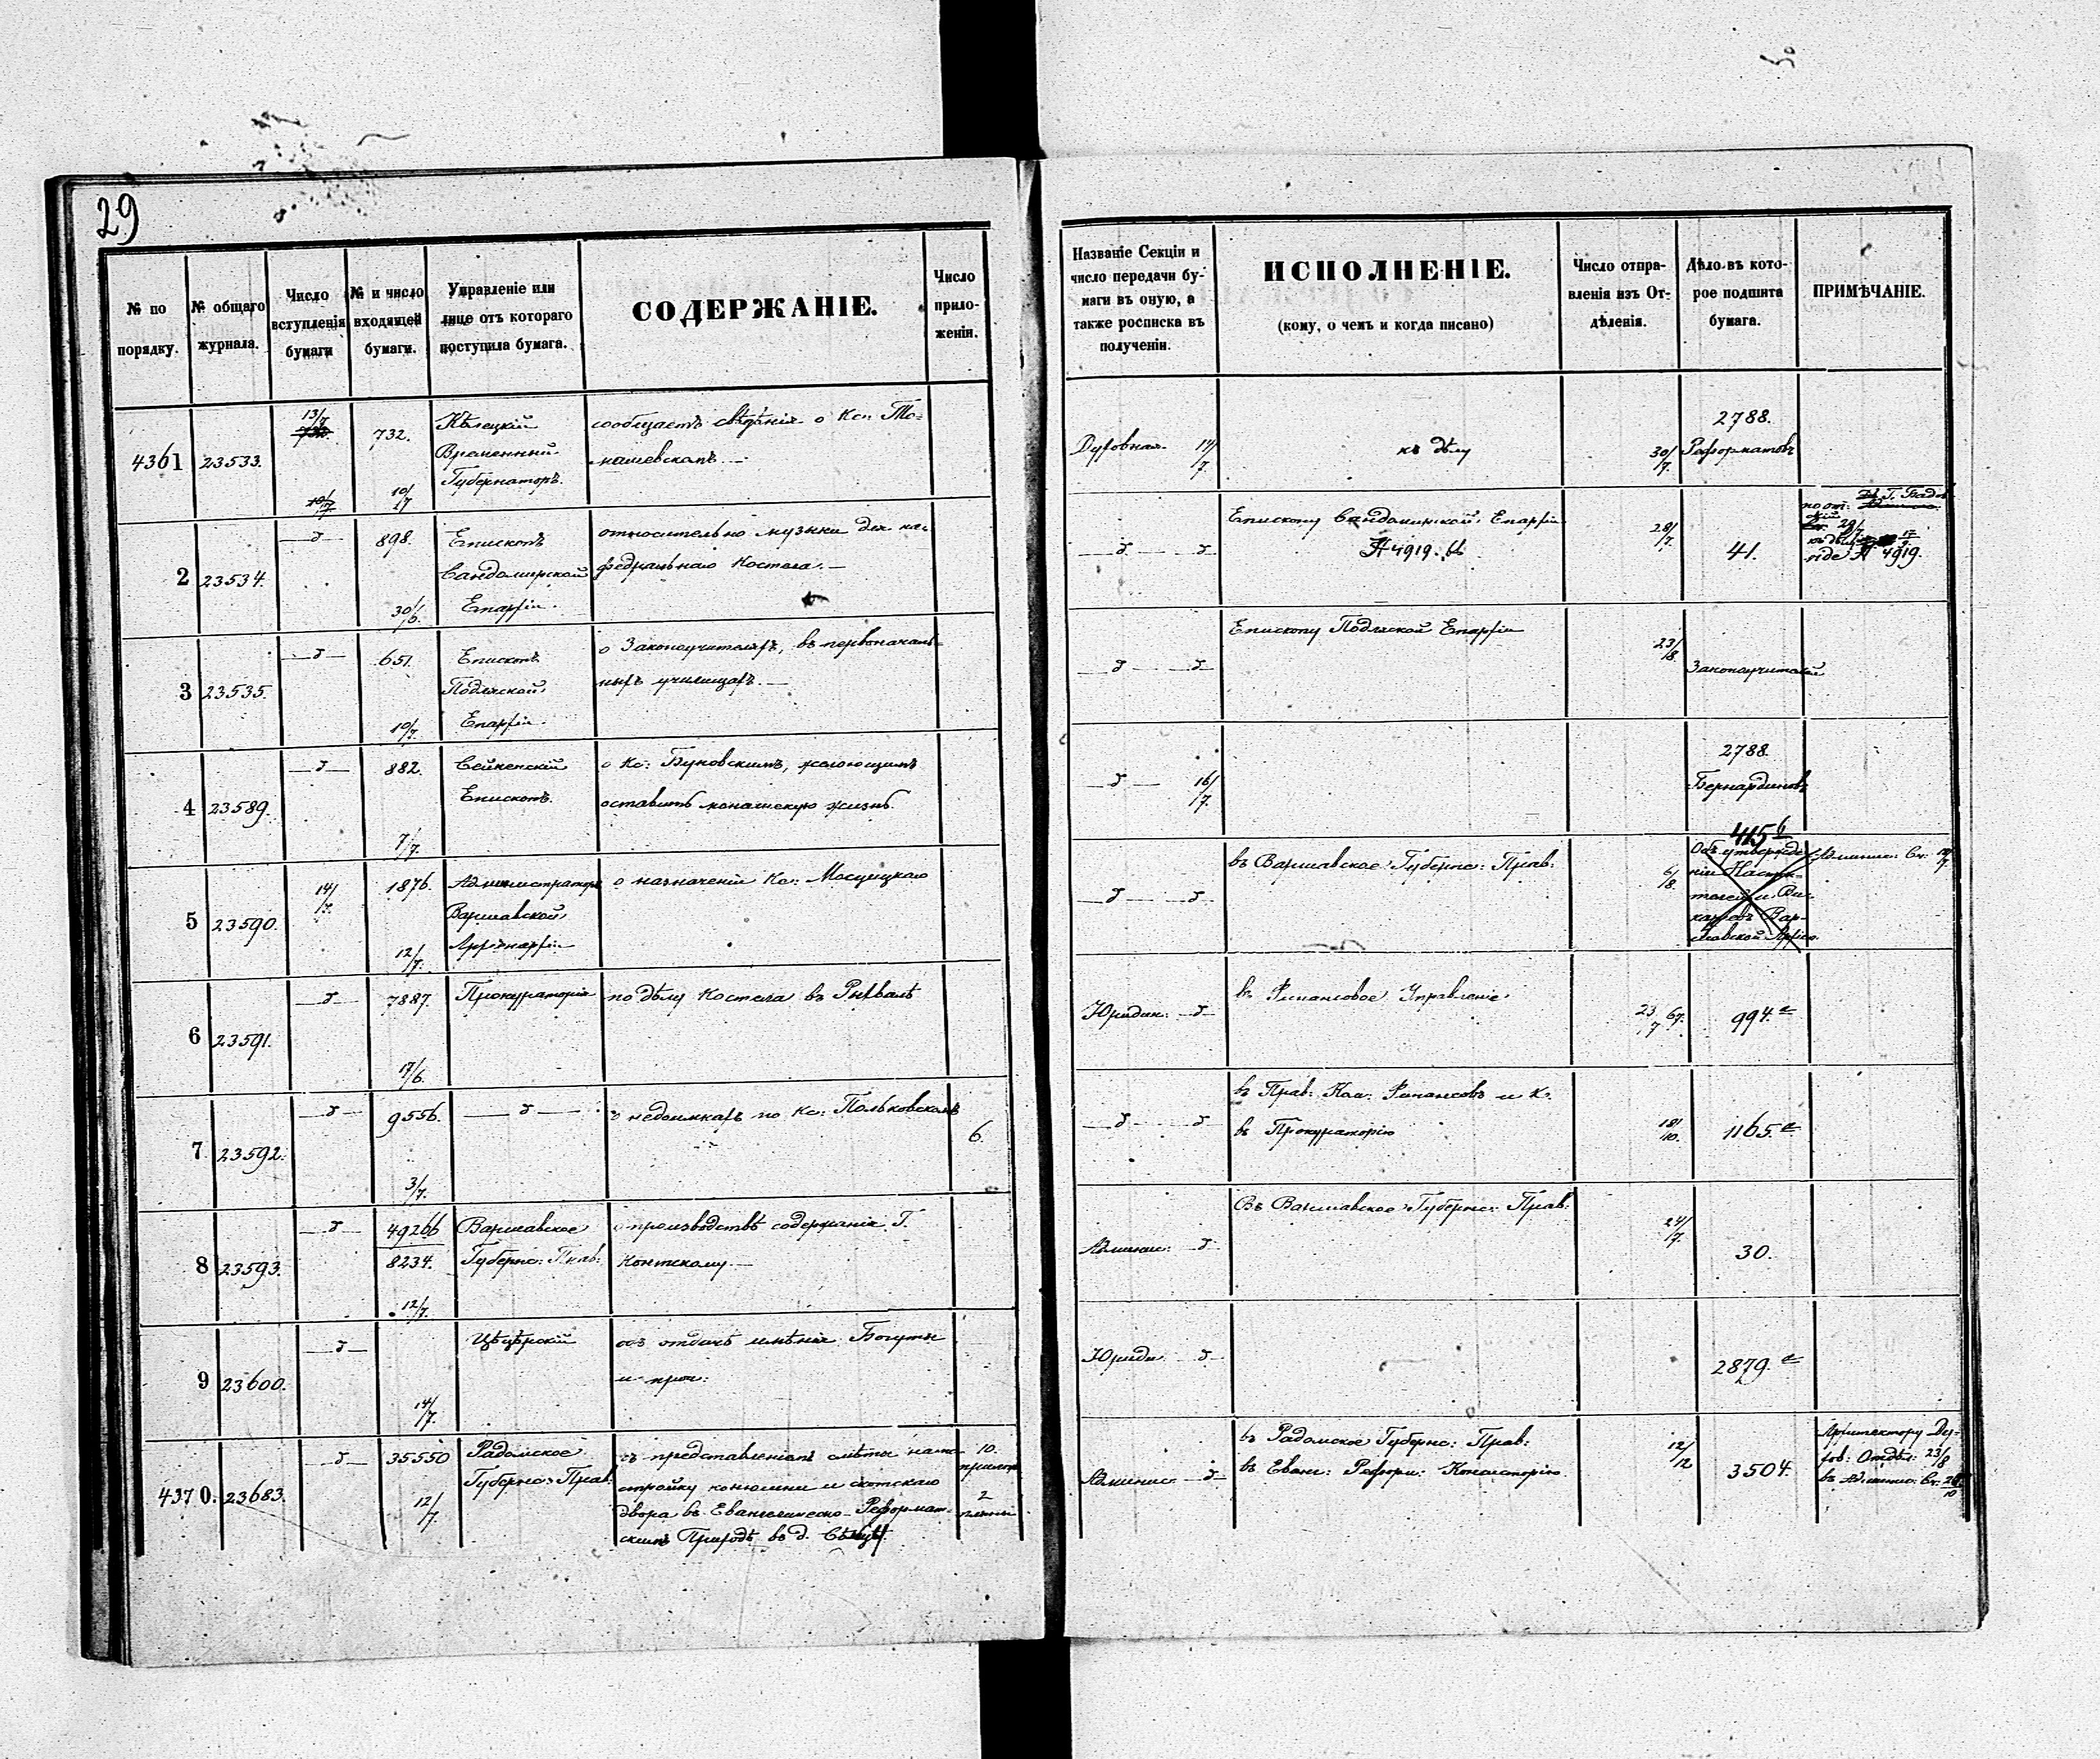 29
№ по порядку.
№ общаго журнала.
Число вступленія бумаги
№ и число входящей бумаги.
Управленіе или лице отъ котораго поступила бумага.
СОДЕРЖАНІЕ.
Число приложеній.
Названіе Секціи и число передачи бумаги въ оную, а также росписка въ полученіи.
ИСПОЛНЕНІЕ.
(кому, о чемъ и когда писано)
Число отправленія изъ Отдѣленія.
Дѣло въ которое подшита бумага.
ПРИМѢЧАНІЕ.
4361
23533.
13/7
732.
10/7
Кѣлецкій
Временный
Губернаторъ.
сообщаетъ свѣдѣнія о Кс: То-
машевскомъ. —
Духовная 14/7.
къ дѣлу
30/7.
2788.
Реформатовъ
2
23534.
898.
30/6.
Епископъ
Сандомирской
Епархіи.
относительно музыки для ка-
федральнаго Костела. —
Епископу Сандомирской Епархіи
№ 4919.
28/7.
41.
4919.
3
23535.
651.
10/7.
Епископъ
Подляской
Епархіи.
о Законоучителяхъ, въ первоначаль-
ныхъ училищахъ. —
Епископу Подляской Епархіи
23/8.
Законоучителей
4
23589.
882.
7/7.
Сейненскій
Епископъ.
о Кс: Буновскимъ, желающимъ
оставить монашескую жизнь.
16/7.
2788.
Бернардиновъ
5
23590.
14/7.
1876.
12/7.
Администраторъ
Варшавской
Архіепархіи
о назначеніи Кс: Мосцицкаго
въ Варшавское Губернс: Прав:
6/8.
415 б
Объ утвержде-
ніи Настоя-
телей и Ви-
каріевъ Вар-
шавской Архіе.
6
23591.
7887.
17/6.
Прокураторія
по дѣлу Костела въ Рывалѣ
Юридич:
въ Финансовое Управленіе
23/7 67.
994. а
7
23592.
9556.
3/7.
о недоимкахъ по Кс: Польковскомъ
6.
въ Прав: Ком: Финансовъ и К.
въ Прокураторію
18/10.
1165. а
8
23593.
49266
8234.
12/7.
Варшавское
Губернс: Прав:
о производствѣ содержанія Г.
Контскому. —
Админис:
Въ Варшавское Губернс: Прав:
24/7.
30.
9
23600.
14/7.
Цѣцѣрскій
объ отдачѣ имѣнія Богуты
и проч:
Юриди.
2879. а
4370.
23683.
35550
12/7.
Радомское
Губернс: Прав:
съ представленіемъ смѣты на по-
стройку конюшни и скотскаго
двора въ Евангелическо-Реформат-
скимъ Приходѣ въ д.
10.
прилож
2
планы
Админис
въ Радомское Губернс: Прав:
въ Еванг: Реформ: Консисторію
12/12
3504.
Архитектору Ду-
хов: Отдѣл: 23/8
въ Админис: Се: